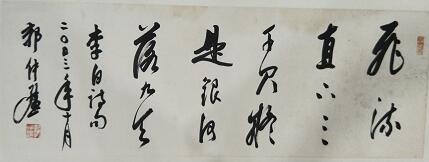 飛流
直下三
千尺疑
是銀河
落九天
李白詩句
二〇〇三年十月
郭仲選